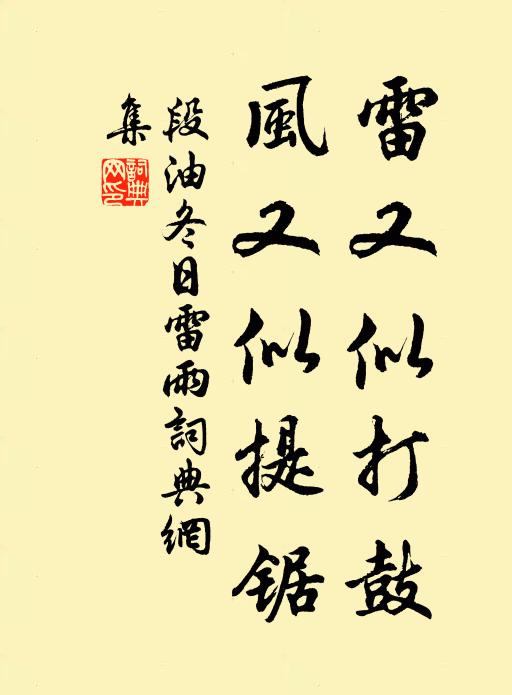 雷又似打鼓
風又似提锯
段油冬日雷雨詞典網
集
詞典網印